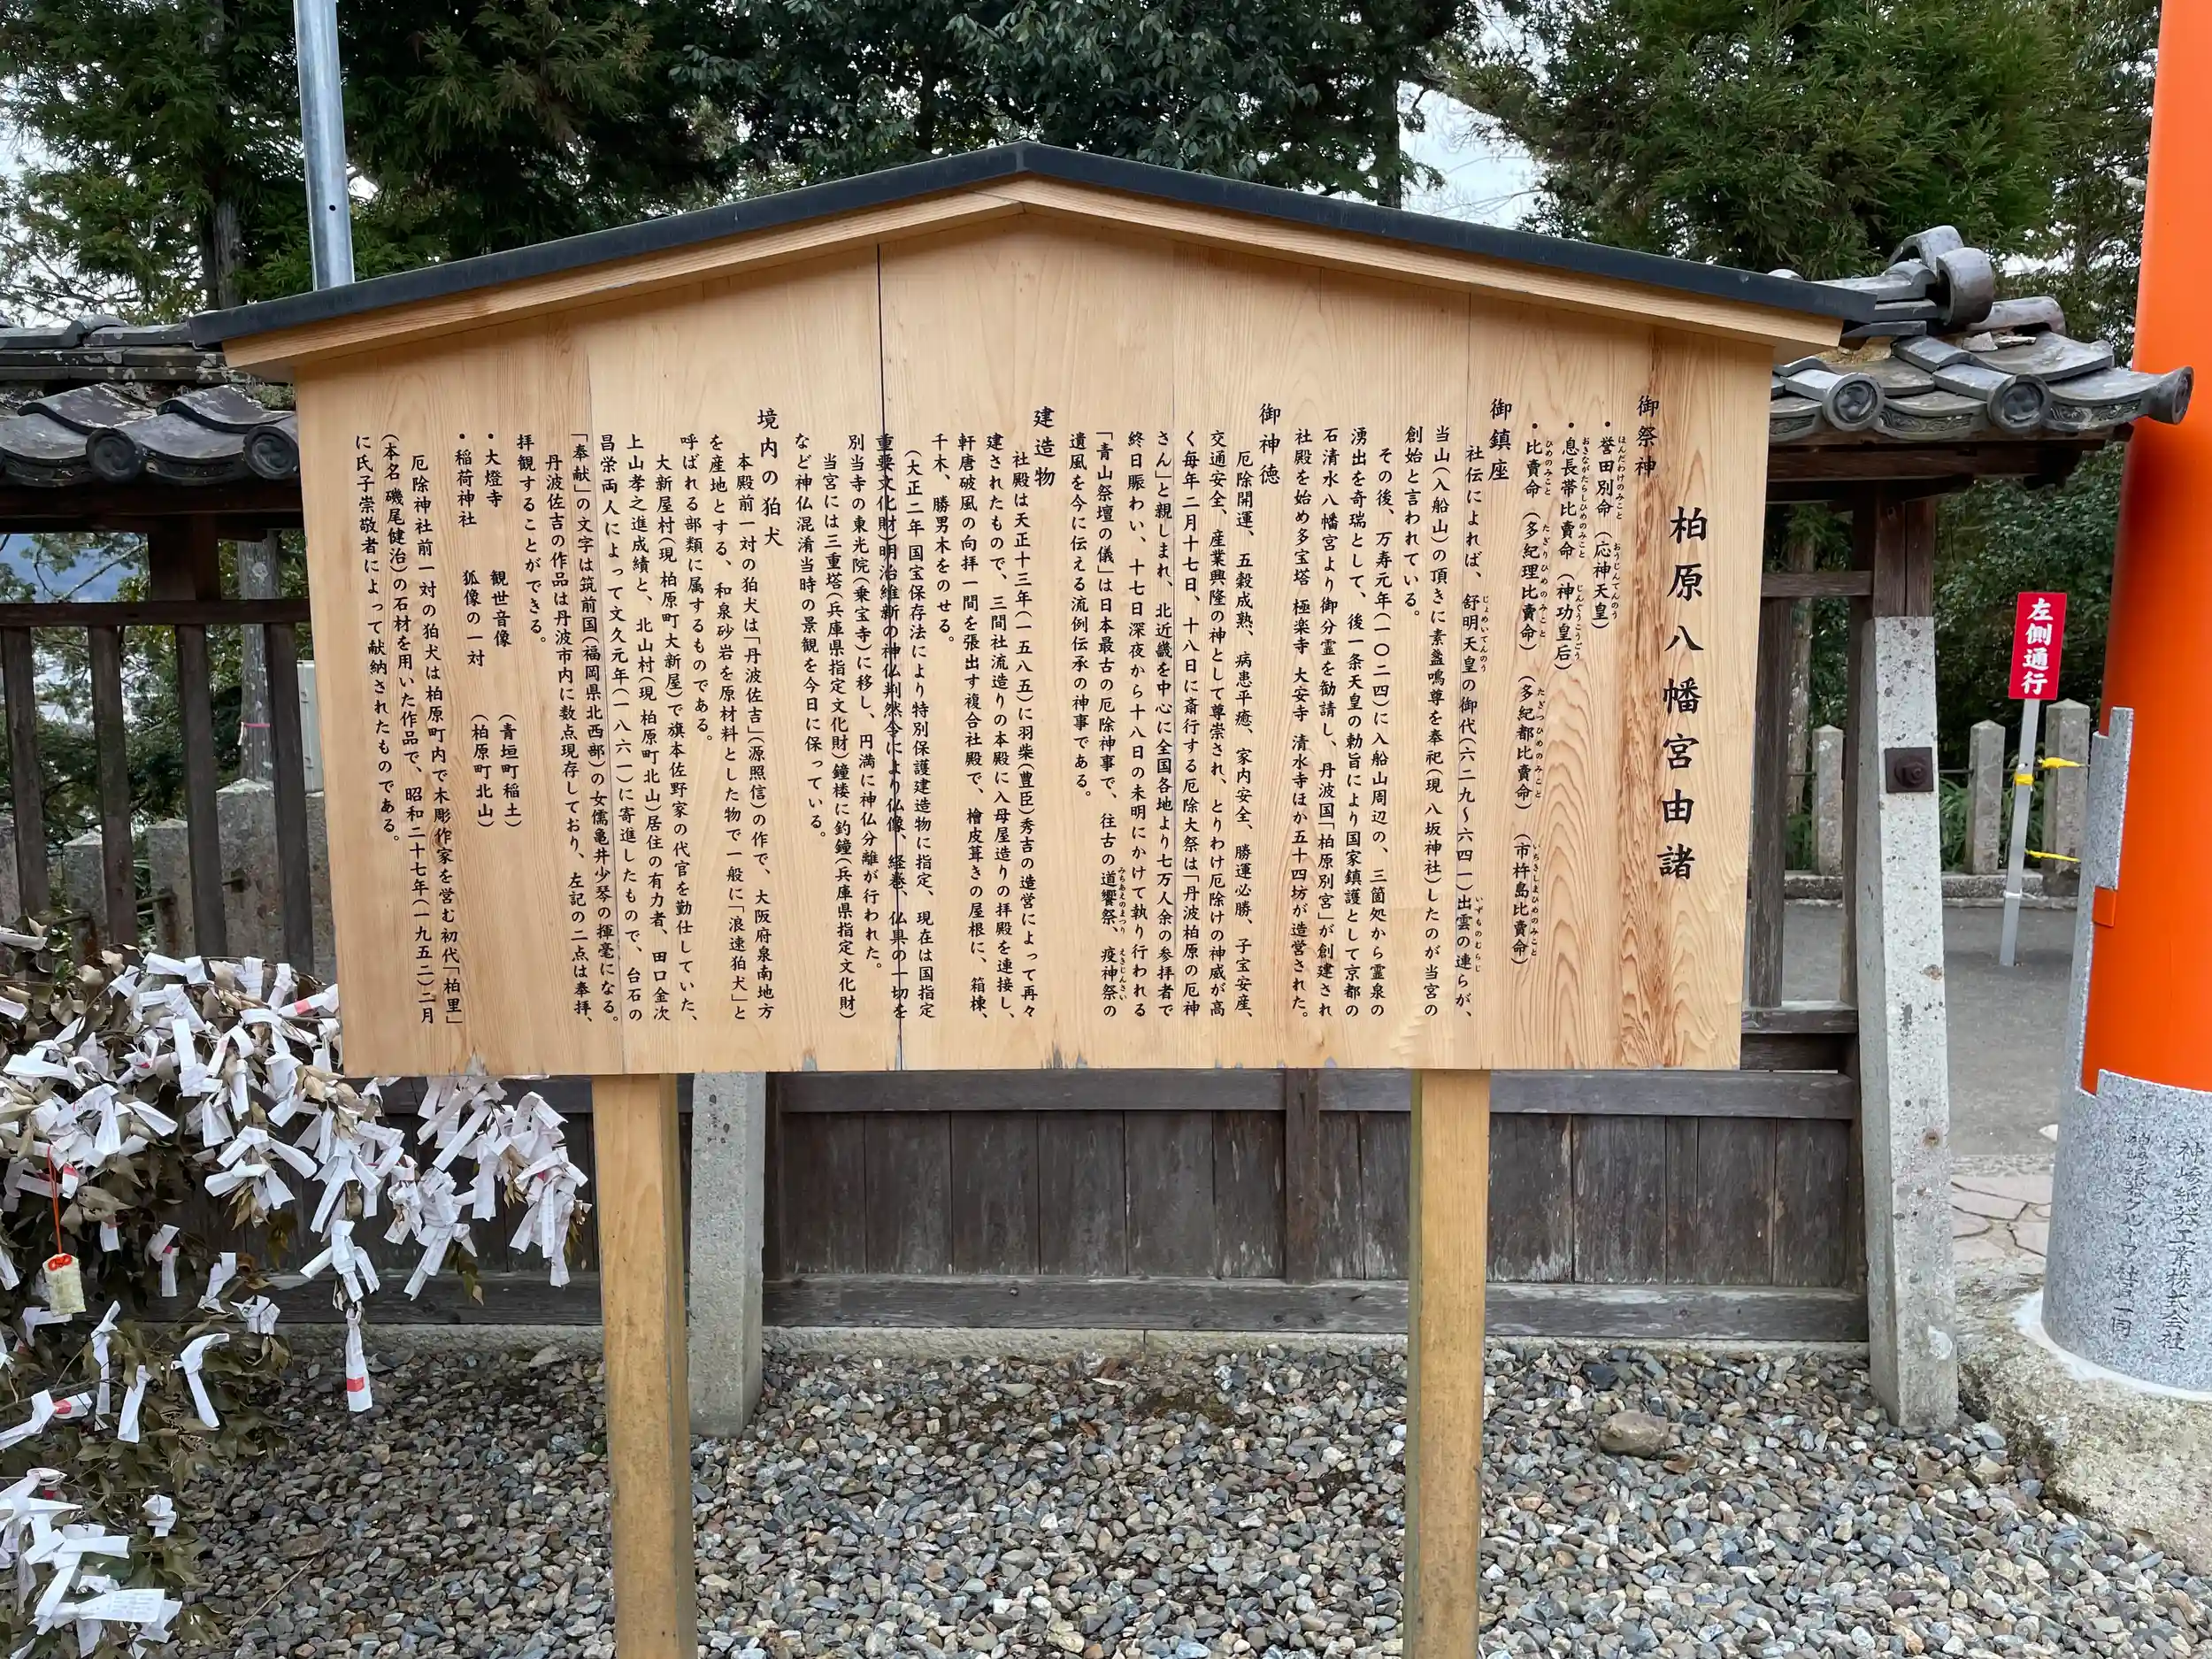 柏原八幡宮由諸
御祭神
・誉田別命（応神天皇）
ほんだわけのみこと　おうじんてんのう
・息長帯比賣命（神功皇后）
おきながたらしひめのみこと　じんぐうこうごう
・比賣命（多紀理比賣命）（多紀都比賣命）（市杵島比賣命）
ひめのみこと　たぎりひめのみこと　たぎつひめのみこと　いちきしまひめのみこと
御鎮座
社伝によれば、舒明天皇の御代（六二九～六四一）出雲の連らが、
じょめいてんのう　いずものむらじ
当山（入船山）の頂きに素盞鳴尊を奉祀（現 八坂神社）したのが当宮の
創始と言われている。
その後、万寿元年（一〇二四）に入船山周辺の、三箇処から霊泉の
湧出を奇瑞として、後一条天皇の勅旨により国家鎮護として京都の
石清水八幡宮より御分霊を勧請し、丹波国「柏原別宮」が創建され
社殿を始め多宝塔 極楽寺 大安寺 清水寺ほか五十四坊が造営された。
御神徳
厄除開運、五穀成熟、病患平癒、家内安全、勝運必勝、子宝安産、
交通安全、産業興隆の神として尊崇され、とりわけ厄除けの神威が高
く毎年二月十七日、十八日に斎行する厄除大祭は「丹波柏原の厄神
さん」と親しまれ、北近畿を中心に全国各地より七万人余の参拝者で
終日賑わい、十七日深夜から十八日の未明にかけて執り行われる
「青山祭壇の儀」は日本最古の厄除神事で、往古の道饗祭、疫神祭の
みちあえのまつり　えきじんさい
遺風を今に伝える流例伝承の神事である。
建造物
社殿は天正十三年（一五八五）に羽柴（豊臣）秀吉の造営によって再々
建されたもので、三間社流造りの本殿に入母屋造りの拝殿を連接し、
軒唐破風の向拝一間を張出す複合社殿で、檜皮葺きの屋根に、箱棟、
千木、勝男木をのせる。
（大正二年 国宝保存法により特別保護建造物に指定、現在は国指定
重要文化財）明治維新の神仏判然令により仏像、経巻、仏具の一切を
別当寺の東光院（乗宝寺）に移し、円満に神仏分離が行われた。
当宮には三重塔（兵庫県指定文化財）鐘楼に釣鐘（兵庫県指定文化財）
など神仏混淆当時の景観を今日に保っている。
境内の狛犬
本殿前一対の狛犬は「丹波佐吉」（源照信）の作で、大阪府泉南地方
を産地とする、和泉砂岩を原材料とした物で一般に「浪速狛犬」と
呼ばれる部類に属するものである。
大新屋村（現 柏原町大新屋）で旗本佐野家の代官を勤仕していた、
上山孝之進成績と、北山村（現 柏原町北山）居住の有力者、田口金次
昌栄両人によって文久元年（一八六一）に寄進したもので、台石の
「奉献」の文字は筑前国（福岡県北西部）の女儒亀井少琴の揮毫になる。
丹波佐吉の作品は丹波市内に数点現存しており、左記の二点は奉拝、
拝観することができる。
・大燈寺　観世音像　（青垣町稲土）
・稲荷神社　狐像の一対　（柏原町北山）
厄除神社前一対の狛犬は柏原町内で木彫作家を営む初代「柏里」
（本名 磯尾健治）の石材を用いた作品で、昭和二十七年（一九五二）二月
に氏子崇敬者によって献納されたものである。
左側通行
工業株式会社